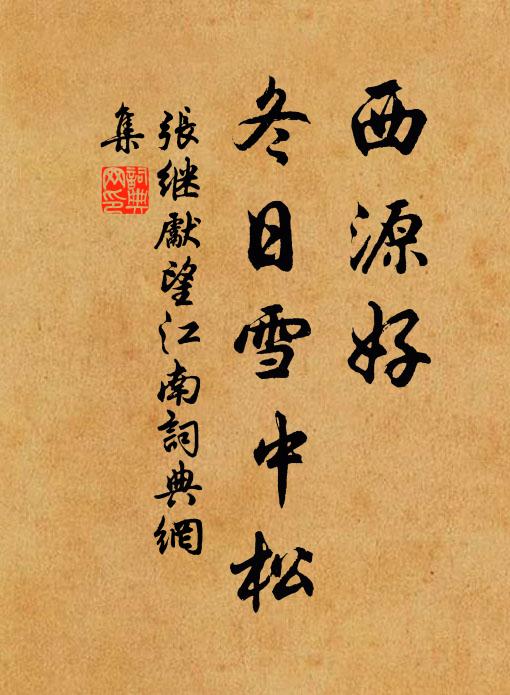 西源好
冬日雪中松
張继獻望江南詞典網
集
詞典
网印